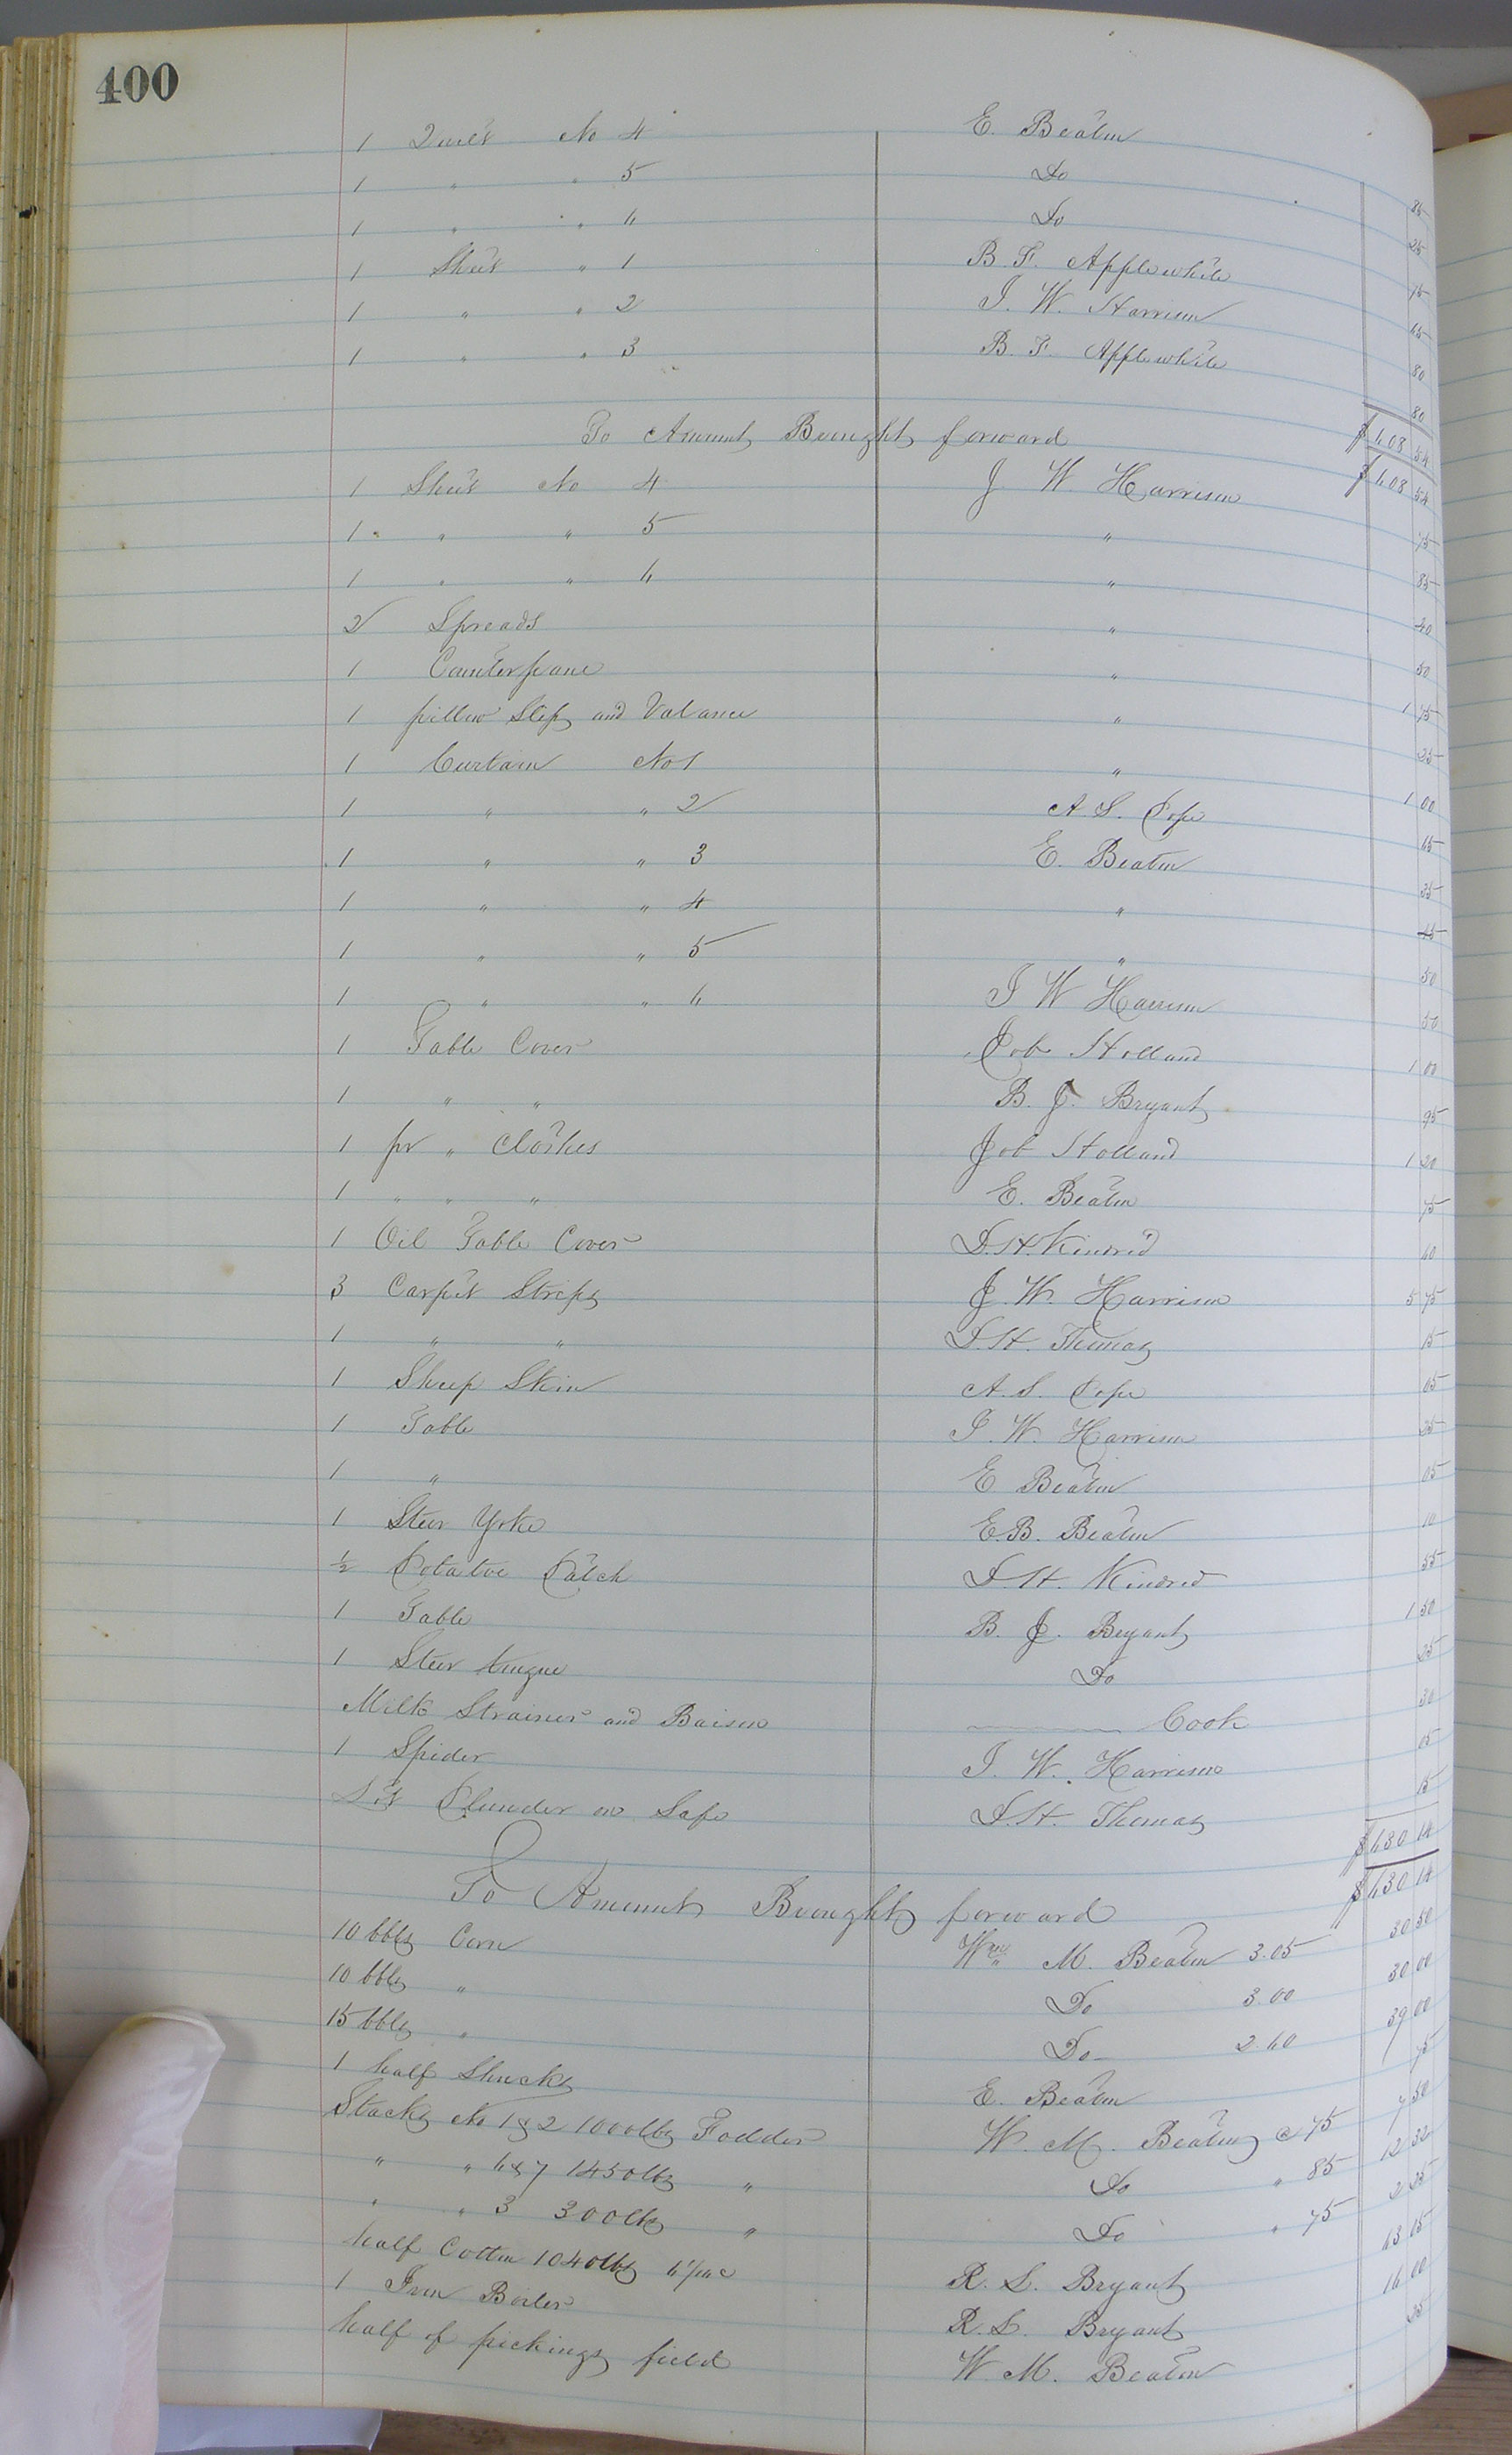 400
1 Quilt No 4 E. Beaton 85
1 " " 5 Do 25
1 " " 6 Do 15
1 Sheet " 1 B. F. Applewhite 65
1 " " 2 J. W. Harrison 80
1 " " 3 B. F. Applewhite 80
$608 54
To Amount Brought forward $608 54
1 Sheet No 4 J W Harrison 75
1 " " 5 " 85
1 " " 6 " 40
2 Spreads " 50
1 Counterpane " 1 75
1 pillow Slip and Valance " 25
1 Curtain No 1 " 1 00
1 " " 2 A. S. Pope 65
1 " " 3 E. Beaton 35
1 " " 4 " 45
1 " " 5 " 50
1 " " 6 J W Harrison 50
1 Table Cover Job Holland 1 00
1 " " B. J. Bryant 95
1 pr " Clothes Job Holland 1 20
1 " " " E. Beaton 75
1 Oil Table Cover D. H. Kindred 60
3 Carpet Strips J. W. Harrison 5 75
1 " " D. H. Thomas 15
1 Sheep Skin A. S. Pope 05
1 Table J. W. Harrison 25
1 " E Beaton 05
1 Steer Yoke E. B. Beaton 10
½ Potatoe Patch D. H. Kindred 55
1 Table B. J. Bryant 1 50
1 Steer tongue Do 25
Milk Strainer and Baison Cook 30
1 Spider J. W. Harrison 05
Lot Plunder on Safe D. H. Thomas 15
$630 14
To Amount Brought forward $630 14
10 bbls Corn Wm M. Beaton 3.05 30 50
10 bbls " Do 3.00 30 00
15 bbls " Do 2.60 39 00
1 half Shucks E. Beaton 75
Stacks No 1 & 2 1000lbs Fodder W. M. Beaton @ 75 7 50
" " 6 & 7 1450lbs " Do " 85 12 32
" " 3 300lbs " Do " 75 2 25
half Cotton 1040lbs R. S. Bryant 63 05
1 Iron Boiler R. S. Bryant 16 00
half of pickings field W. M. Beaton 25